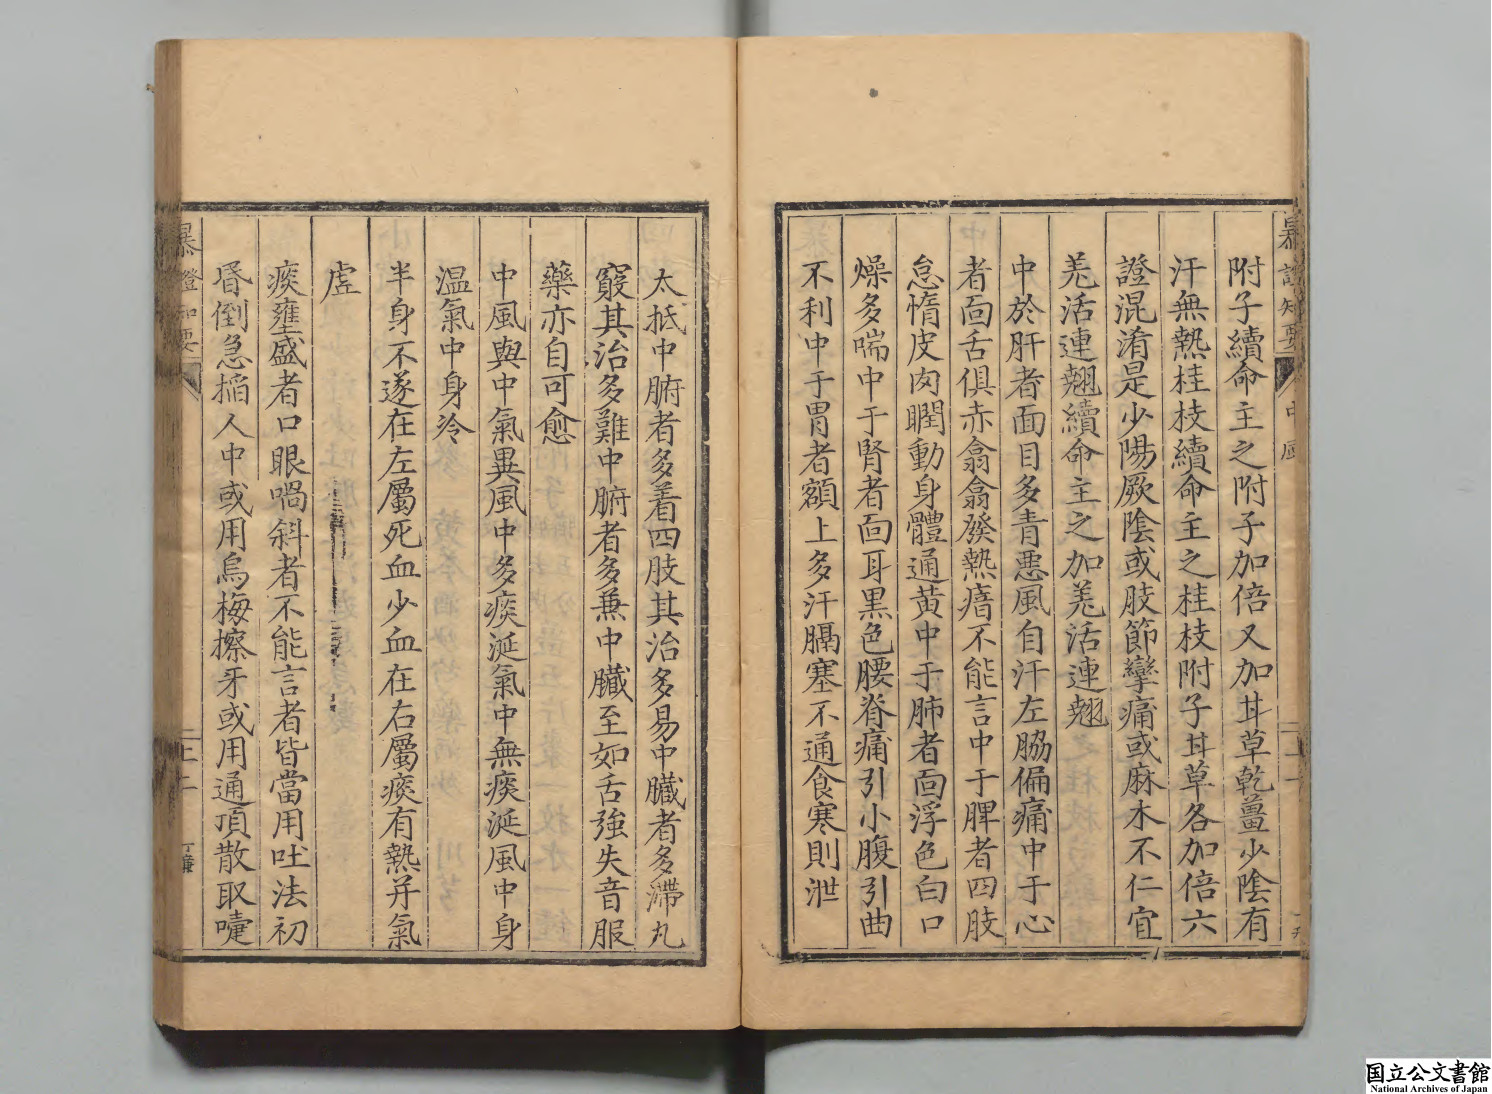 附子續命主之附子加倍又加甘草乾薑少陰有
汗無熱桂枝續命主之桂枝附子甘草各加倍六
證混淆是少陽厥陰或肢節攣痛或麻木不仁宜
羌活連翹續命主之加羌活連翹
中於肝者面目多青惡風自汗左脇偏痛中于心
者面舌俱赤翕翕發熱瘖不能言中于脾者四肢
怠惰皮肉瞤動身體通黃中于肺者面浮色白口
燥多喘中于腎者面耳黑色腰脊痛引小腹引曲
不利中于胃者額上多汗膈塞不通食寒則泄
太抵中腑者多着四肢其治多易中臟者多滯九
竅其治多難中腑者多兼中臟至如舌強失音服
藥亦自可愈
中風與中氣異風中多痰涎氣中無痰涎風中身
温氣中身冷
半身不遂在左屬死血少血在右屬痰有熱并氣
虛
痰壅盛者口眼喎斜者不能言者皆當用吐法初
昏倒急搯人中或用烏梅擦牙或用通頂散取嚏
暴證知要
中風
暴證知要
上二
国立公文書館
National Archives of Japan